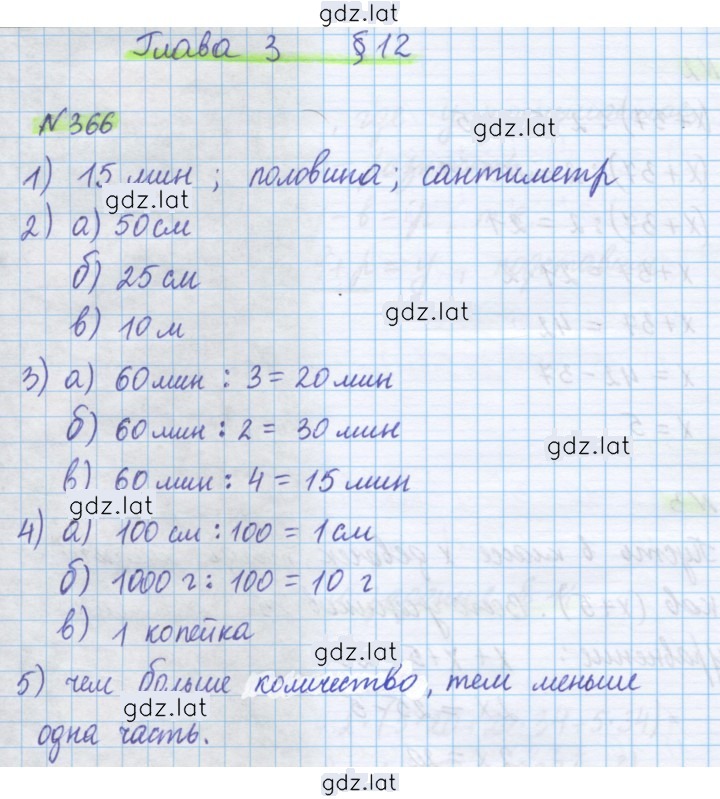 gdz.lat
Глава 3 § 12
№ 366
gdz.lat
1) 15 мин ; половина ; сантиметр
gdz.lat
2) а) 50 см
б) 25 см
gdz.lat
в) 10 м
3) а) 60 мин : 3 = 20 мин
б) 60 мин : 2 = 30 мин
gdz.lat
в) 60 мин : 4 = 15 мин
gdz.lat
4) а) 100 см : 100 = 1 см
б) 1000 г : 100 = 10 г
в) 1 копейка
gdz.lat
5) чем больше количество, тем меньше
gdz.lat
одна часть.
gdz.lat